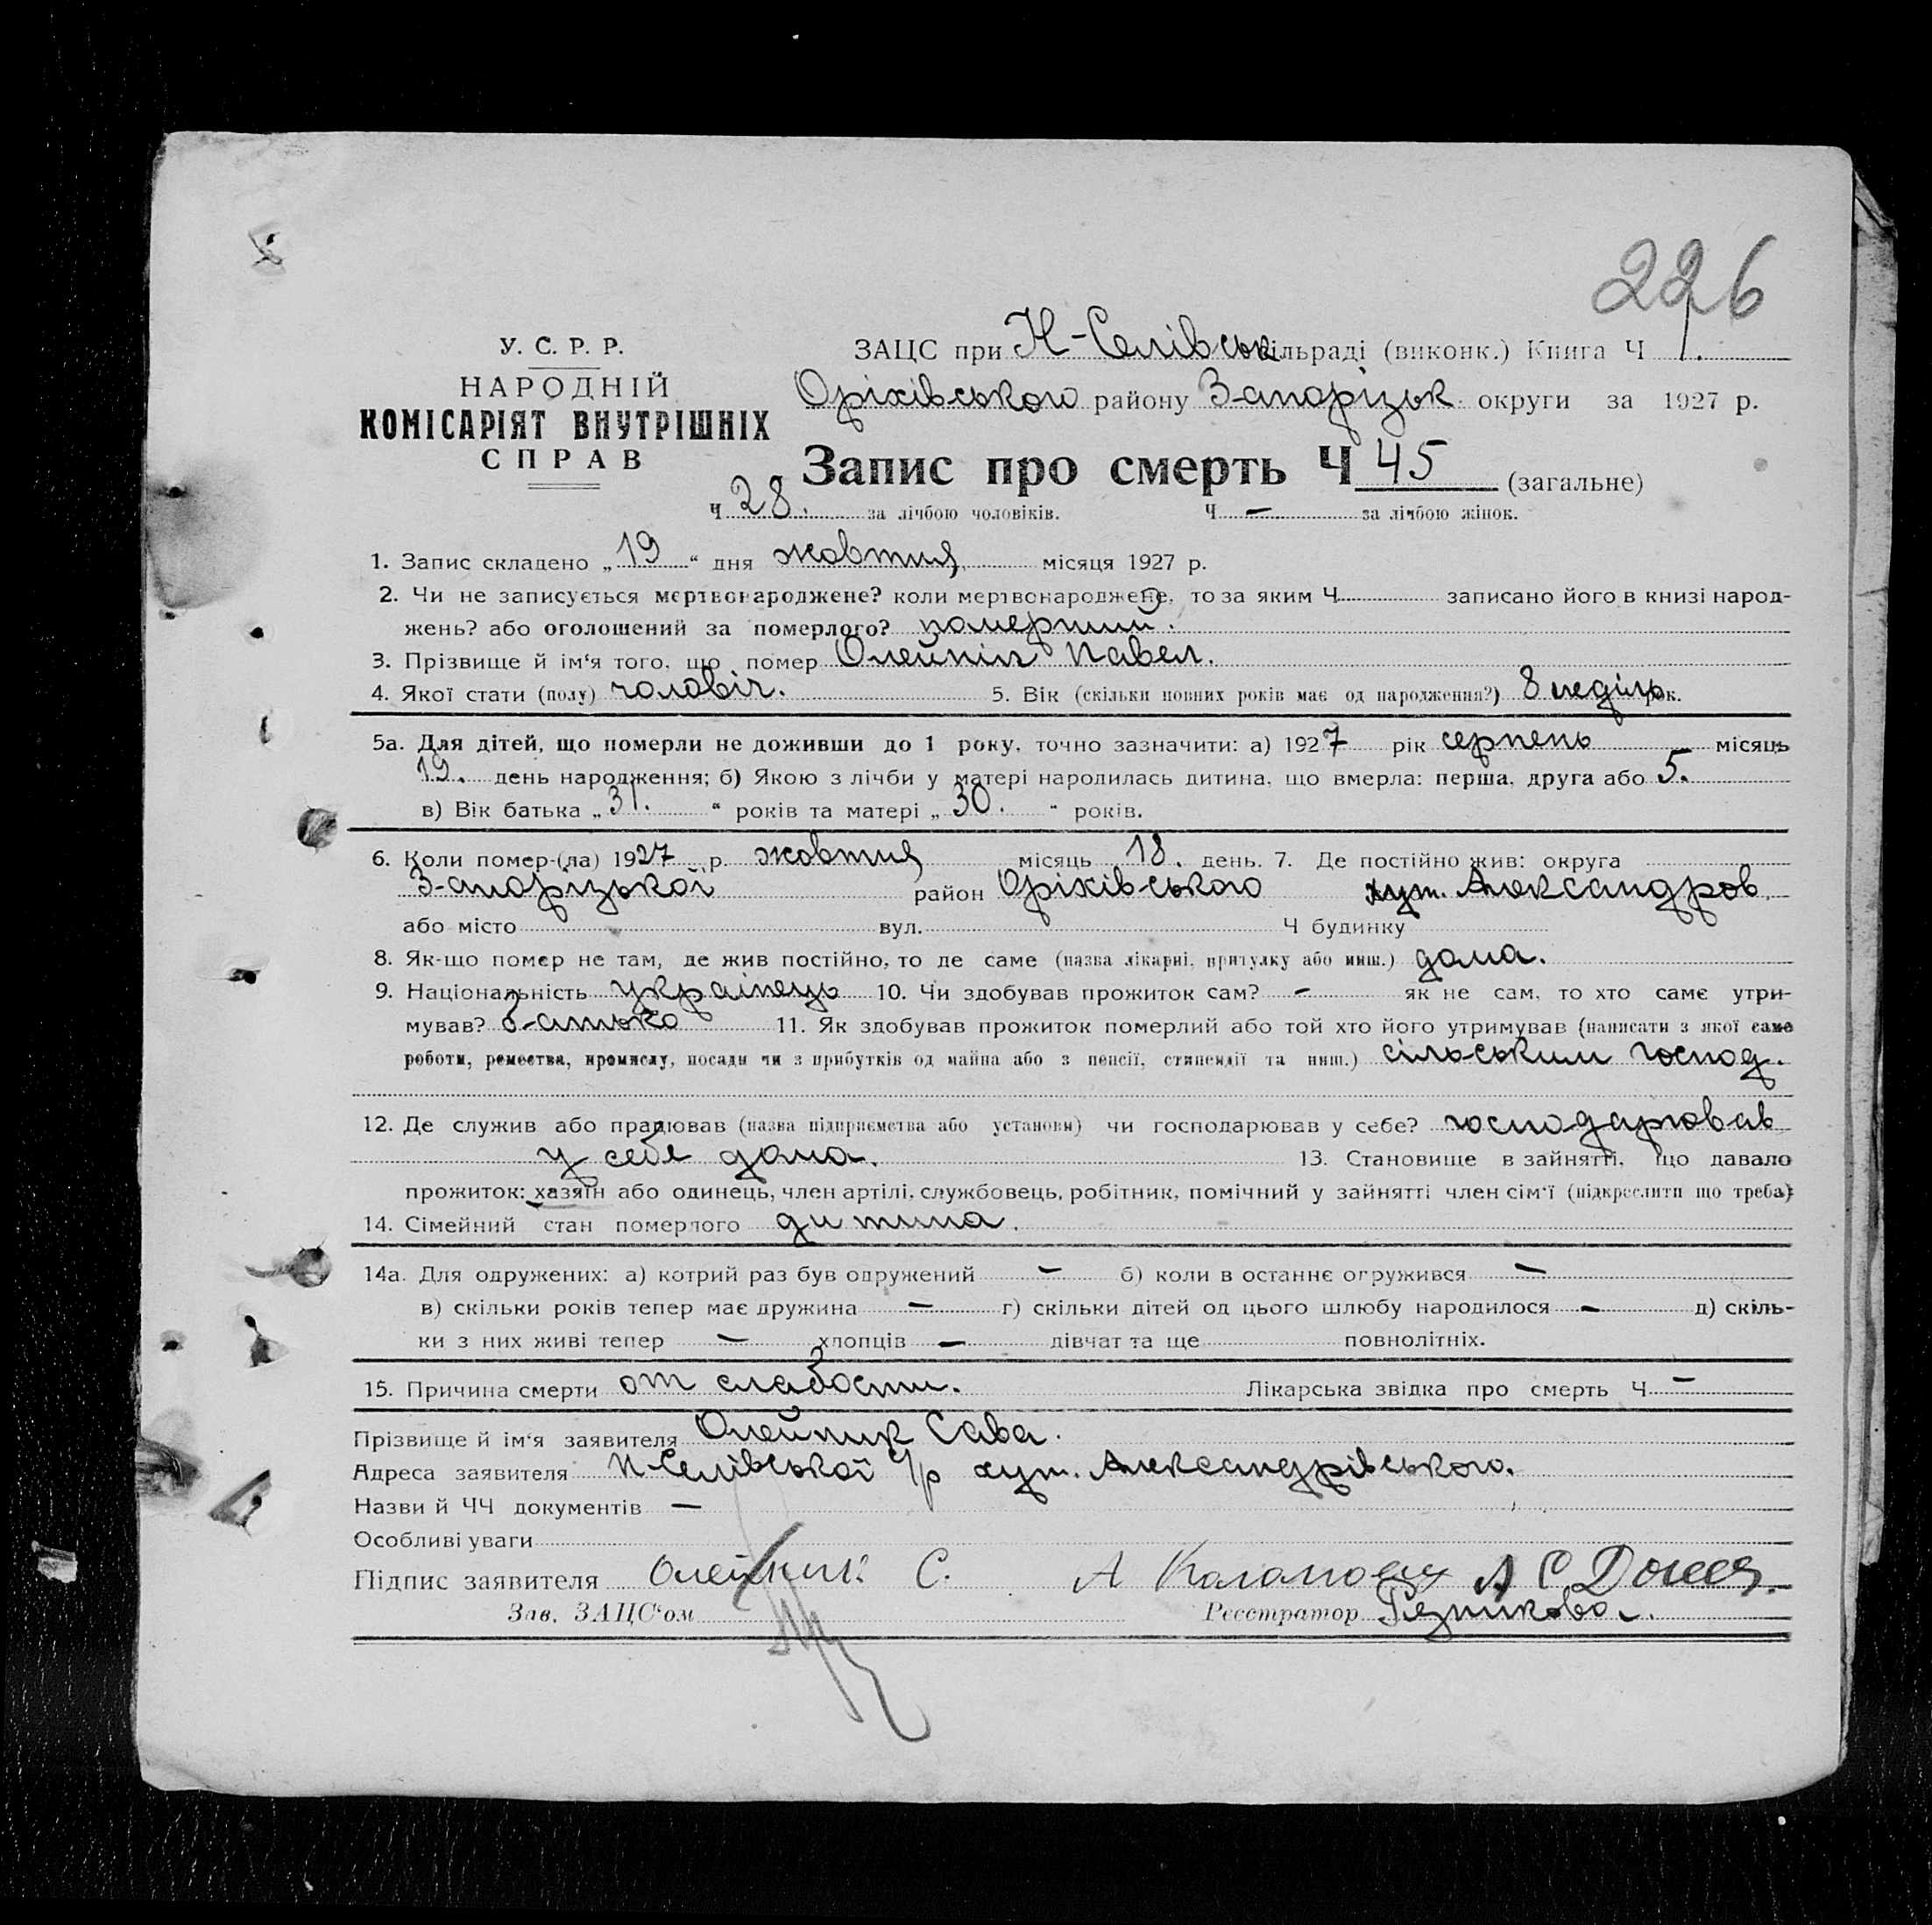 226
У. С. Р. Р.
НАРОДНІЙ
КОМІСАРІЯТ ВНУТРІШНІХ
СПРАВ
ЗАЦС при Н-Селівськ сільраді (виконк.) Книга Ч 1.
Оріхівського району Запорізьк округи за 1927 р.
Запис про смерть Ч 45 (загальне)
Ч 28. за лічбою чоловіків. Ч — за лічбою жінок.
1. Запис складено „19“ дня жовтня місяця 1927 р.
2. Чи не записується мертвонароджене? коли мертвонароджене, то за яким Ч записано його в книзі народ-
жень? або оголошений за померлого? померший.
3. Прізвище й ім'я того, що помер Олейнік Павел.
4. Якої стати (полу) чоловіч. 5. Вік (скільки повних років має од народження?) 8 неділь рок.
5а. Для дітей, що померли не доживши до 1 року, точно зазначити: а) 1927 рік серпень місяць
19. день народження; б) Якою з лічби у матері народилась дитина, що вмерла: перша, друга або 5.
в) Вік батька „31.“ років та матері „30.“ років.
6. Коли помер-(ла) 1927 р. жовтня місяць 18. день. 7. Де постійно жив: округа
Запорізької район Оріхівського хут. Александров.
або місто вул. Ч будинку
8. Як-що помер не там, де жив постійно, то де саме (назва лікарні, притулку або инш.) дома.
9. Національність украінець 10. Чи здобував прожиток сам? — як не сам, то хто саме утри-
мував? батько 11. Як здобував прожиток померлий або той хто його утримував (написати з якої саме
роботи, ремества, промислу, посади чи з прибутків од майна або з пенсії, стипендії та инш.) сільським господ.
12. Де служив або працював (назва підприємства або установи) чи господарював у себе? господарював
у себе дома. 13. Становище в зайнятті, що давало
прожиток: хазяїн або одинець, член артілі, службовець, робітник, помічний у зайнятті член сім'ї (підкреслити що треба)
14. Сімейний стан померлого дитина.
14а. Для одружених: а) котрий раз був одружений — б) коли в останнє огружився —
в) скільки років тепер має дружина — г) скільки дітей од цього шлюбу народилося — д) скіль-
ки з них живі тепер — хлопців — дівчат та ще повнолітніх.
15. Причина смерти от слабости. Лікарська звідка про смерть Ч —
Прізвище й ім'я заявителя Олейник Сава.
Адреса заявителя Н-Селівської с/р хут. Александрівського.
Назви й ЧЧ документів —
Особливі уваги
Підпис заявителя Олейник С. А
Зав. ЗАЦС'ом Реєстратор Резникова.